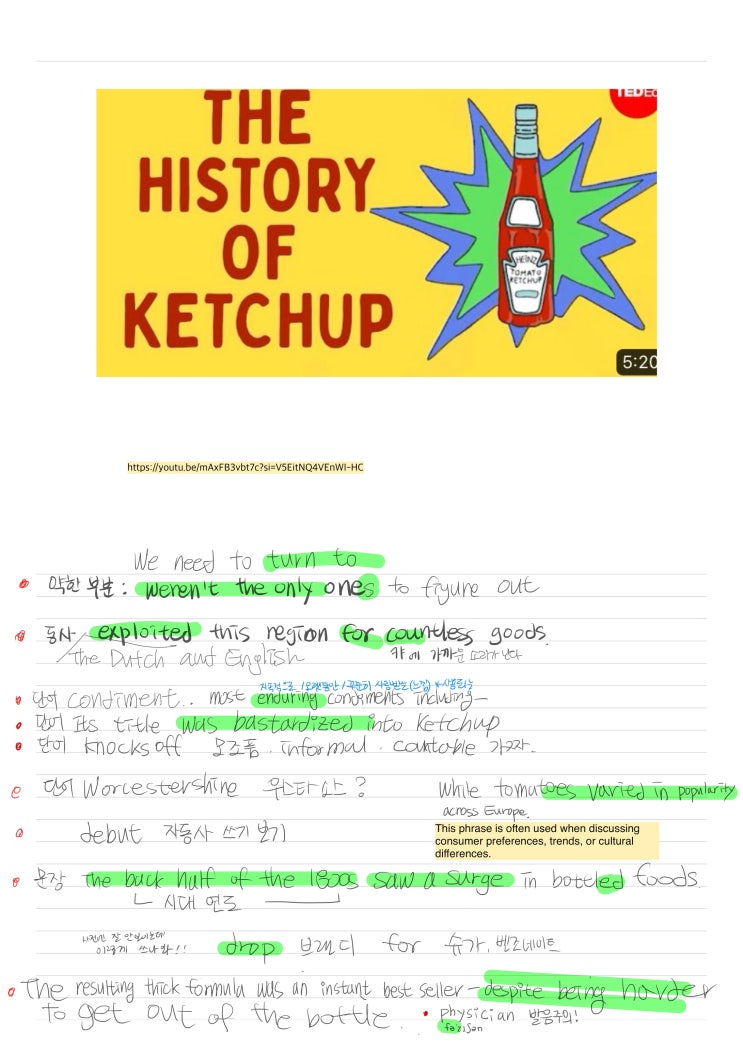 TEDEd
THE
HISTORY
OF
KETCHUP
HEINZ
TOMATO
KETCHUP
5:20
https://youtu.be/mAxFB3vbt7c?si=V5EitNQ4VEnWI-HC
We need to turn to
약한 부분 : weren't the only ones to figure out
동사 exploited this region for countless goods.
the Dutch and English
단어 condiment.. most enduring condiments including—
단어 Its title was bastardized into ketchup
단어 knocks off 모조품 . informal . countable 가짜.
단어 Worcestershine 워스타샤 ? While tomatoes varied in popularity
across Europe.
debut 자동사 쓰기 보기
This phrase is often used when discussing
consumer preferences, trends, or cultural
differences.
문장 the back half of the 1800s saw a surge in bottled foods.
시대 연도
drop 브랜디 for 슈가, 벤조네이트
The resulting thick formula was an instant best seller - despite being harder
to get out of the bottle.
physician 발음주의!